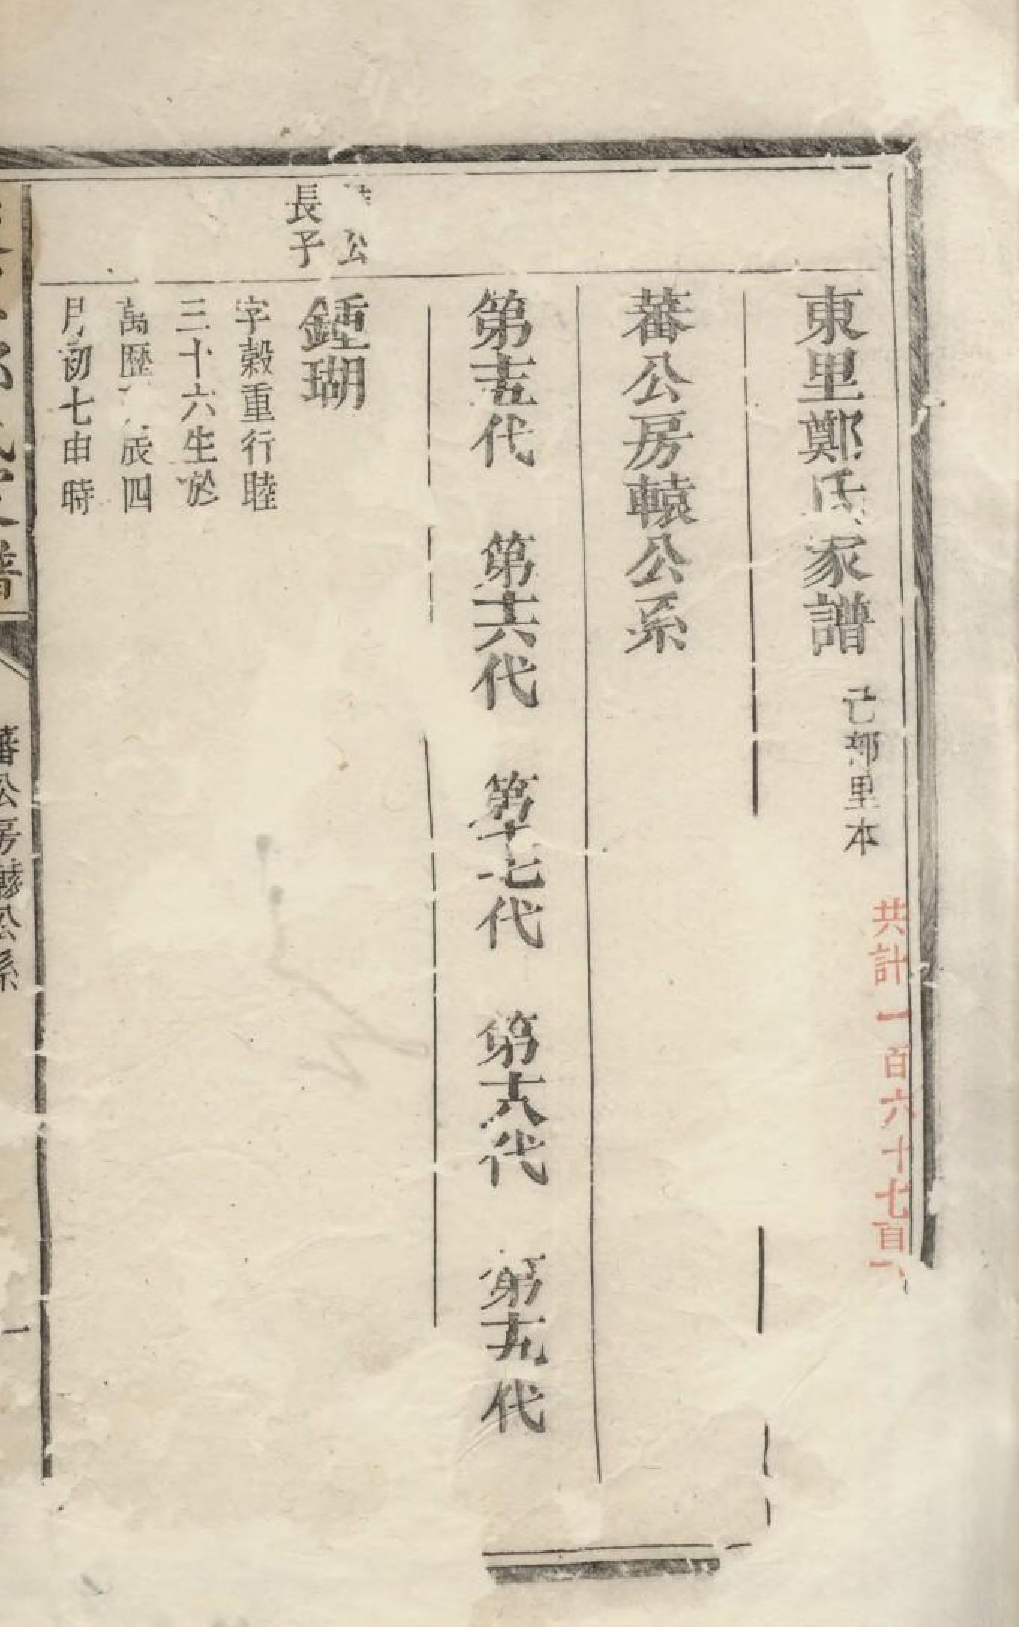 東里鄭氏家譜
里本
共計一百六十七百
蕃公房轅公系
第十五代 第十六代 第十七代 第十八代 第十九代
公
長子
鍾瑚
字穀重行睦
三十六生於
萬歷辰四
月初七申時
譜
蕃公房轅公系
一